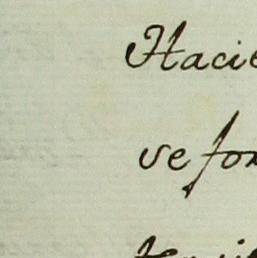 Hacie
se for